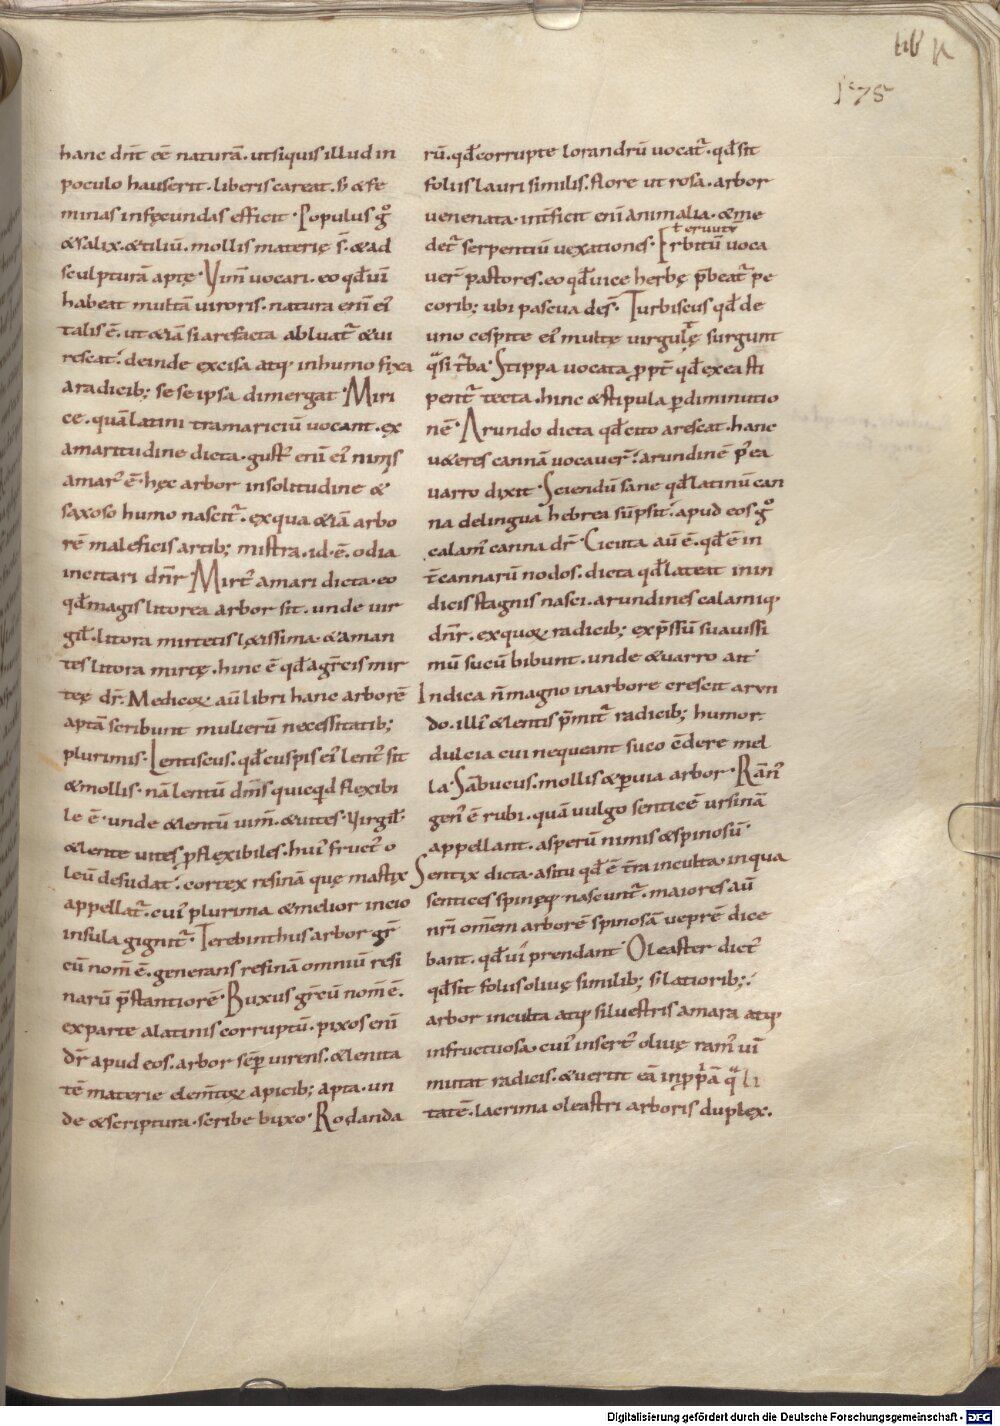 lib
175
hanc dn̄t eē naturā. ut siquis illud in
poculo hauserit. liberis careat. s; & fe
minas infęcundas efficit. Populus gͦ
& salix. & tiliū. mollis materię s̄. & ad
sculpturā aptę. Vim̄ vocari. eo qđ uī
habeat multā viroris. natura enī ei᾽
talis ē. ut &iā si arefacta abluat᷑ & vi
rescat. deinde excisa atq; in humo fixa
a radicib; se se ipsa dimergat. Miri
ce. quā latini tramariciū vocant. ex
amaritudine dicta. gust᾽ enī ei᾽ nimis
amar᾽ ē. hęc arbor in solitudine &
saxoso humo nascit᷑. ex qua &iā arbo
rē maleficis artib; mistra. id. ē. odia
incitari dn̄r. Mirt᾽ a mari dicta. eo
qđ magis litorea arbor sit. unde vir
gił. litora mirtetis l&issima. & aman
tes litora mirtę. hinc ē qđ a grēcis mir
tęę dr̄. Medicoꝝ aū libri hanc arborē
aptā scribunt mulierū necessitatib;
plurimis. Lentiscus. qđ cuspis ei᾽ lent᾽ sit
& mollis. nā lentū dm̄s quicqđ flexibi
le ē. unde & lentū vim̄. & vites. Virgił.
& lente vites ꝓ flexibiles. hui᾽ fruct᾽ o
leū desudat. cortex resinā quę mastix
appellat᷑. cui᾽ plurima & melior in cio
insula gignit᷑. Terebinthus arbor gr̄
cū nom̄ ē. generans resinā omniū resi
narū p̄stantiorē. Buxus gr̄cū nom̄ ē.
ex parte a latinis corruptū. pixos enī
dr̄ apud eos. arbor sēp virens. & levita
tē materie elem̄toꝝ apicib; apta. un
de & scriptura. scribe buxo. Rodanda
rū. qđ corrupte lorandrū vocat᷑. qđ sit
foliis lauri similis. flore ut rosa. arbor
venenata. int̄ficit enī animalia. & me
ł eruitū
det᷑ serpentiū vexationes. Erbitū voca
ver̄ pastores. eo qđ vice herbę p̄beat᷑ pe
corib; ubi pascua des̄. Turbiscus qđ de
uno cespite ei᾽ multę virgulę surgunt
q̄si t᷑ba. Stippa vocata ꝓpt᷑ qđ ex ea sti
pent᷑ tecta. hinc & stipula ꝑ diminutio
nē. Arundo dicta qđ cito arescat. hanc
u&eres cannā vocaver̄. arundinē p᾽ea
varro dixit. Sciendū sane qđ latinū can
na de lingua hebrea sūpsit. apud eos gͦ
calam᾽ canna dr̄. Cicuta aū ē. qđ ē in
t̄ cannarū nodos. dicta qđ lateat in in
dicis stagnis nasci. arundines calamiq;
dn̄r. ex quoꝝ radicib; exp̄ssū suavissi
mū sucū bibunt. unde & varro ait.
Indica n̄ magno in arbore crescit arun
do. illi᾽ & lentis p̄mit᷑ radicib; humor.
dulcia cui nequeant suco c̄dere mel
la. Sābucus. mollis & ꝑvia arbor. Rān᾽
gen᾽ ē rubi. quā vulgo senticē ursinā
appellant. asperū nimis & spinosū.
Sentix dicta. a situ qđ ē t̄ra inculta. in qua
sentices spinęq; nascunt᷑. maiores aū
nr̄i om̄em arborē spinosā veprē dice
bant. qđ vi᾽ prendant. Oleaster dict᾽
qđ sit foliis olivę similib; s; latiorib;.
arbor inculta atq; silvestris amara atq;
infructuosa. cui᾽ insert᾽ olivę ram᾽ vī
mutat radicis. & vertit eā in ꝓpriā q̄li
tatē. lacrima oleastri arboris duplex.
Digitalisierung gefördert durch die Deutsche Forschungsgemeinschaft - DFG